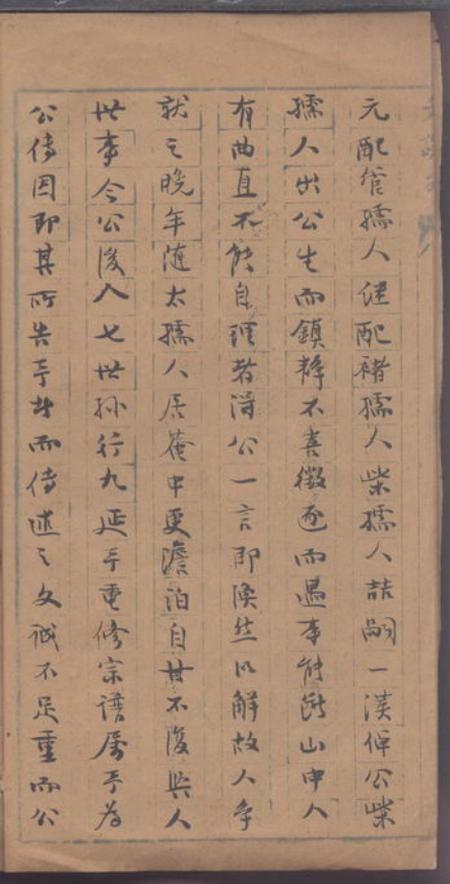 元配管孺人继配褚孺人柴孺人喆嗣一漢倬公柴
孺人出公生而鎮静不喜徵逐而遇事能断山中人
有曲直不能自理者得公一言即涣然以解故人争
就之晚年随太孺人居菴中更澹泊自甘不復與人
世事今公後人七世孫行九延予重修宗譜属予为
公傳因即其所告予者而傳述之文诚不足重而公